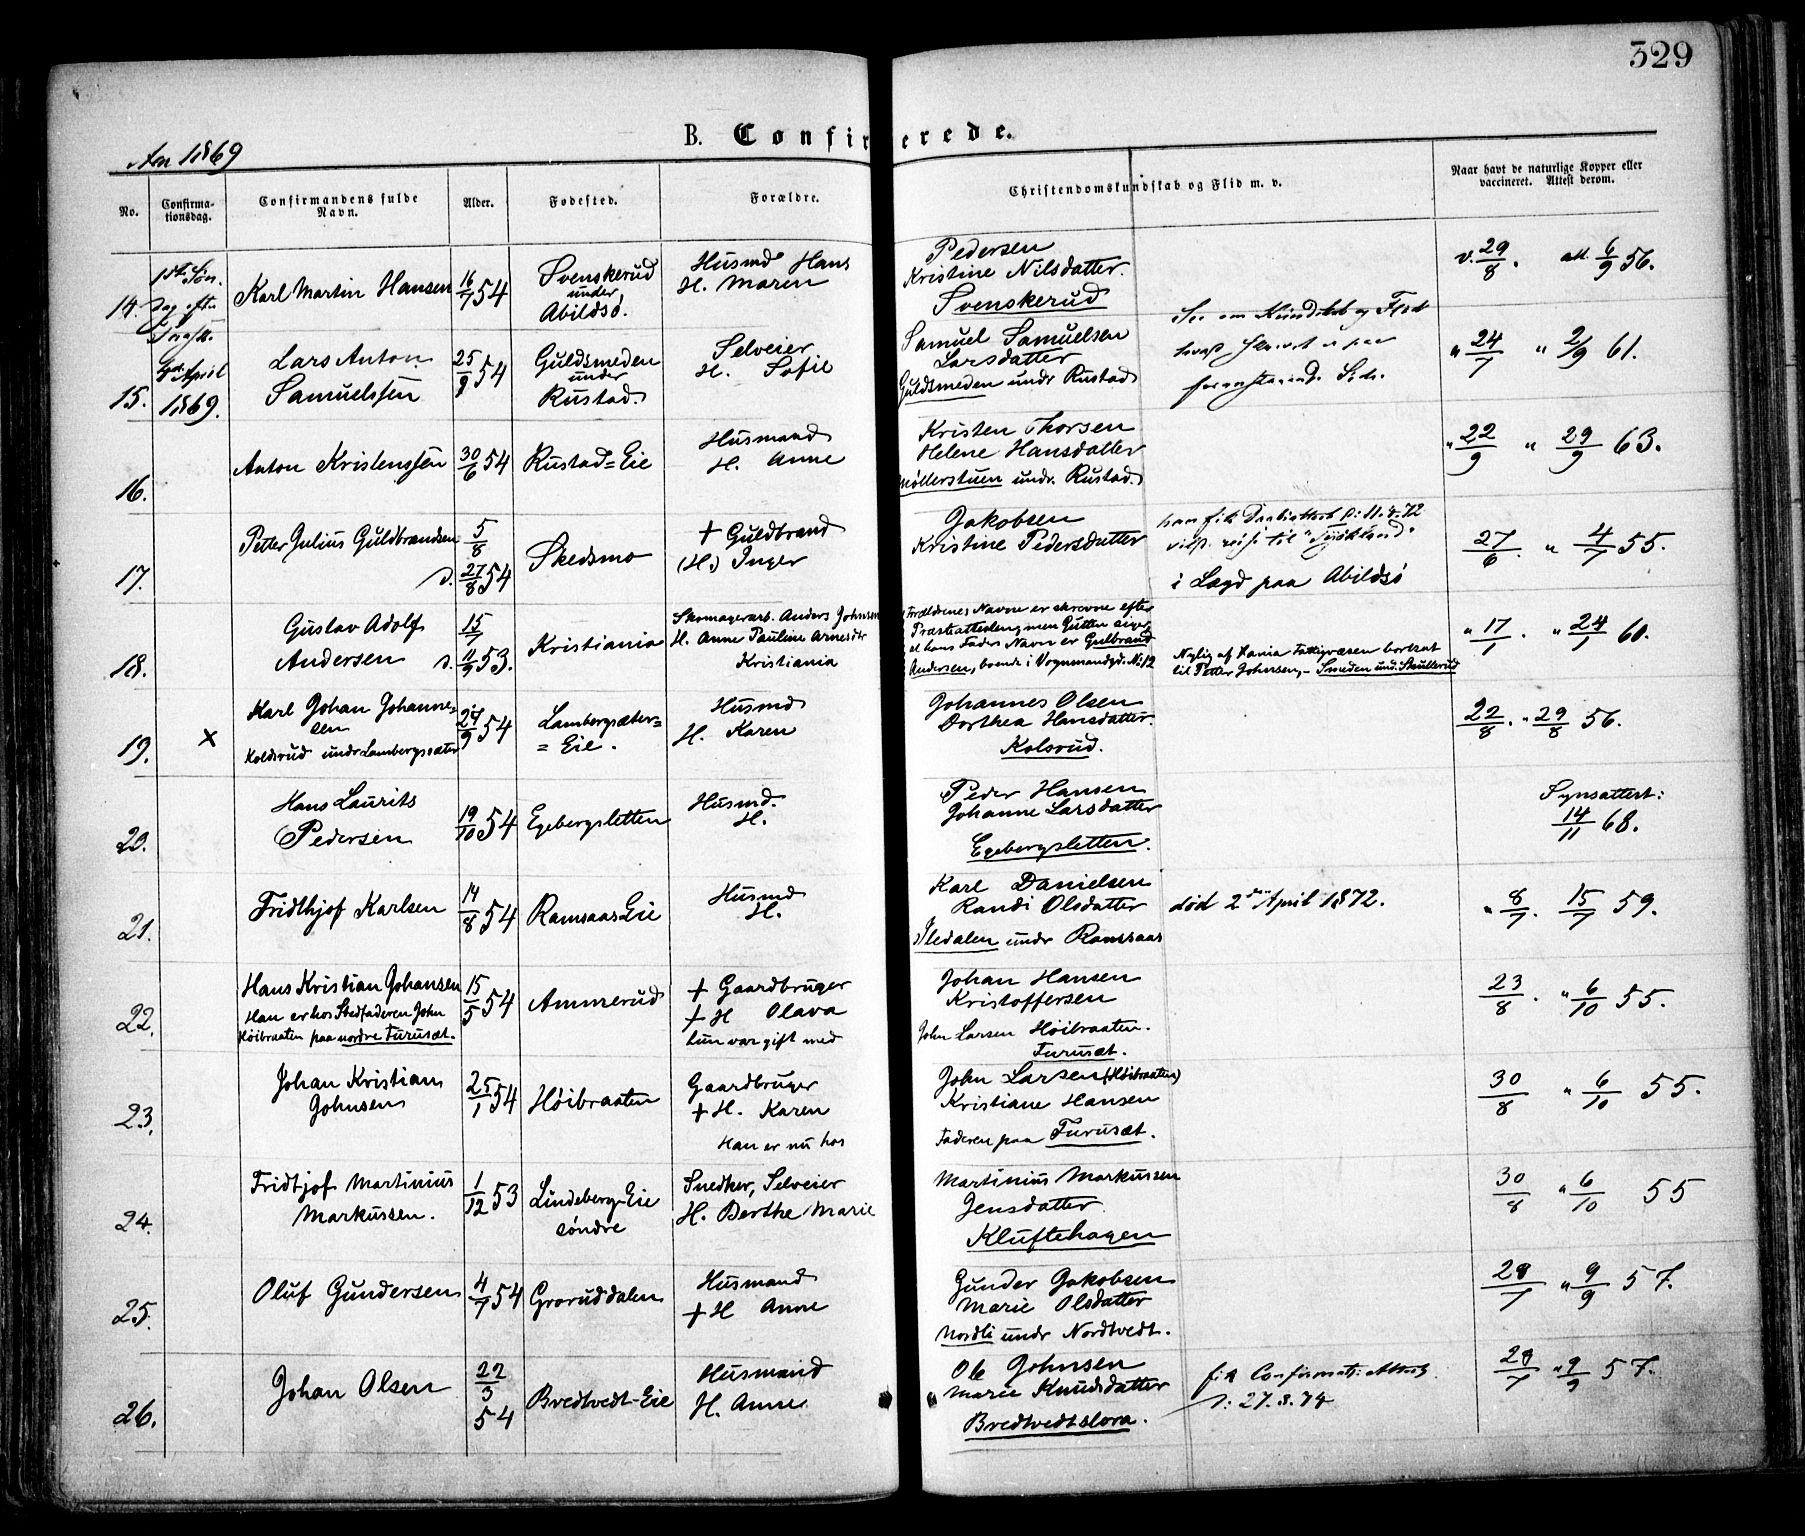 329
B. Confirmerede.
1869
No.
Confirma-
tionsdag.
Confirmandens fulde
Navn.
Alder.
Fødested.
Forældre.
Christendomskundskab og Flid m. v.
Naar havt de naturlige Kopper eller
vaccineret. Attest derom.
14. Karl Martin Hansen 16/7 54 Svenskerud Husmd Hans Pedersen v. 29/8. att. 6/9 56.
under H. Maren Kristine Nilsdatter.
Abildsø. Svenskerud
April
1869.
15. Lars Anton 25/9 54 Guldsmeden Selveier Samuel Samuelsen " 24/7 " 2/9 61.
Samuelssen under H. Sofie Larsdatter
Rustad. Guldsmeden undr Rustad
16. Anton Kristenssen 30/6 54 Rustad=Eie Husmand Kristen Thorsen " 22/9 " 29/9 63.
H. Anne Helene Hansdatter
Møllerstuen undr. Rustad.
17. Petter Julius Guldbrandsen 5/8 Skedsmo + Guldbrand Jakobsen 27/6. " 4/7 55.
d. 27/8 54 (H.) Inger Kristine Pedersdatter
i Lægd paa Abildsø
18. Gustav Adolf 15/7 Kristiania Skomagerarb. Anders Johnsen Forældrenes Navne er skrevne efter " 17/1. " 24/1 60.
Andersen d. 11/9 53. H. Anne Pauline Arnesdtr Præsteattesten, men Gutten siger,
Kristiania at hans Faders Navn er Gulbrand
Andersen, boende i Vognmandgd. No 12
Nylig af Kania Fattigvæsen bortsat
til Petter Johnsen, - Smeden und. Skullerud
19. x Karl Johan Johanne= 24/9 54 Lambergsæter= Husmd Johannes Olsen 22/8. " 29/8 56.
sen = Eie. H. Karen Dorthea Hansdatter.
Koldsrud undr Lambergssæter Kolsrud.
20. Hans Laurits 19/10 54 Egebergsletten Husmd. Peder Hansen Synsattest:
Pedersen H. Johanne Larsdatter 14/11 68.
Egebergsletten.
21. Fridthjof Karlsen 14/8 54 Ramsaas Eie Husmd Karl Danielsen død 2den April 1872. " 8/7. 15/7 59.
H. Randi Olsdatter
undr Ramsaas
22. Hans Kristian Johansen 15/5 54 Ammerud + Gaardbruger Johan Hansen 23/8. " 6/10 55.
Han er hos Stedfaderen John + H Olava Kristoffersen
Høibraaten paa nordre Furusæt. hun var gift med John Larsen Høibraaten.
Furusæt.
23. Johan Kristian 25/1 54 Høibraaten Gaardbruger John Larsen (Høibraaten) 30/8 " 6/10 55.
Johnsen + H. Karen Kristiane Hansen
Han er nu hos Faderen paa Furusæt.
24. Fridtjof Martinius 1/12 53 Lindeberg-Eie Snedker, Selveier Martinius Markussen 30/8 " 6/10 55
Markussen. søndre H. Berthe Marie Jensdatter
Kluftehagen
25. Oluf Gundersen 4/7 54 Groruddalen Husmand Gunder Jakobsen 28/7 " 9/9 57.
+ H Anne Marie Olsdatter
Nordli undr Nordtvedt.
26. Johan Olsen 22/3 54 Bredtvedt-Eie Husmand Ole Johnsen 28/7 " 9/9 57.
H. Anne Marie Knudsdatter
Bredtvedtslora.
fik Confirmats. Attest
d. 27.3.74